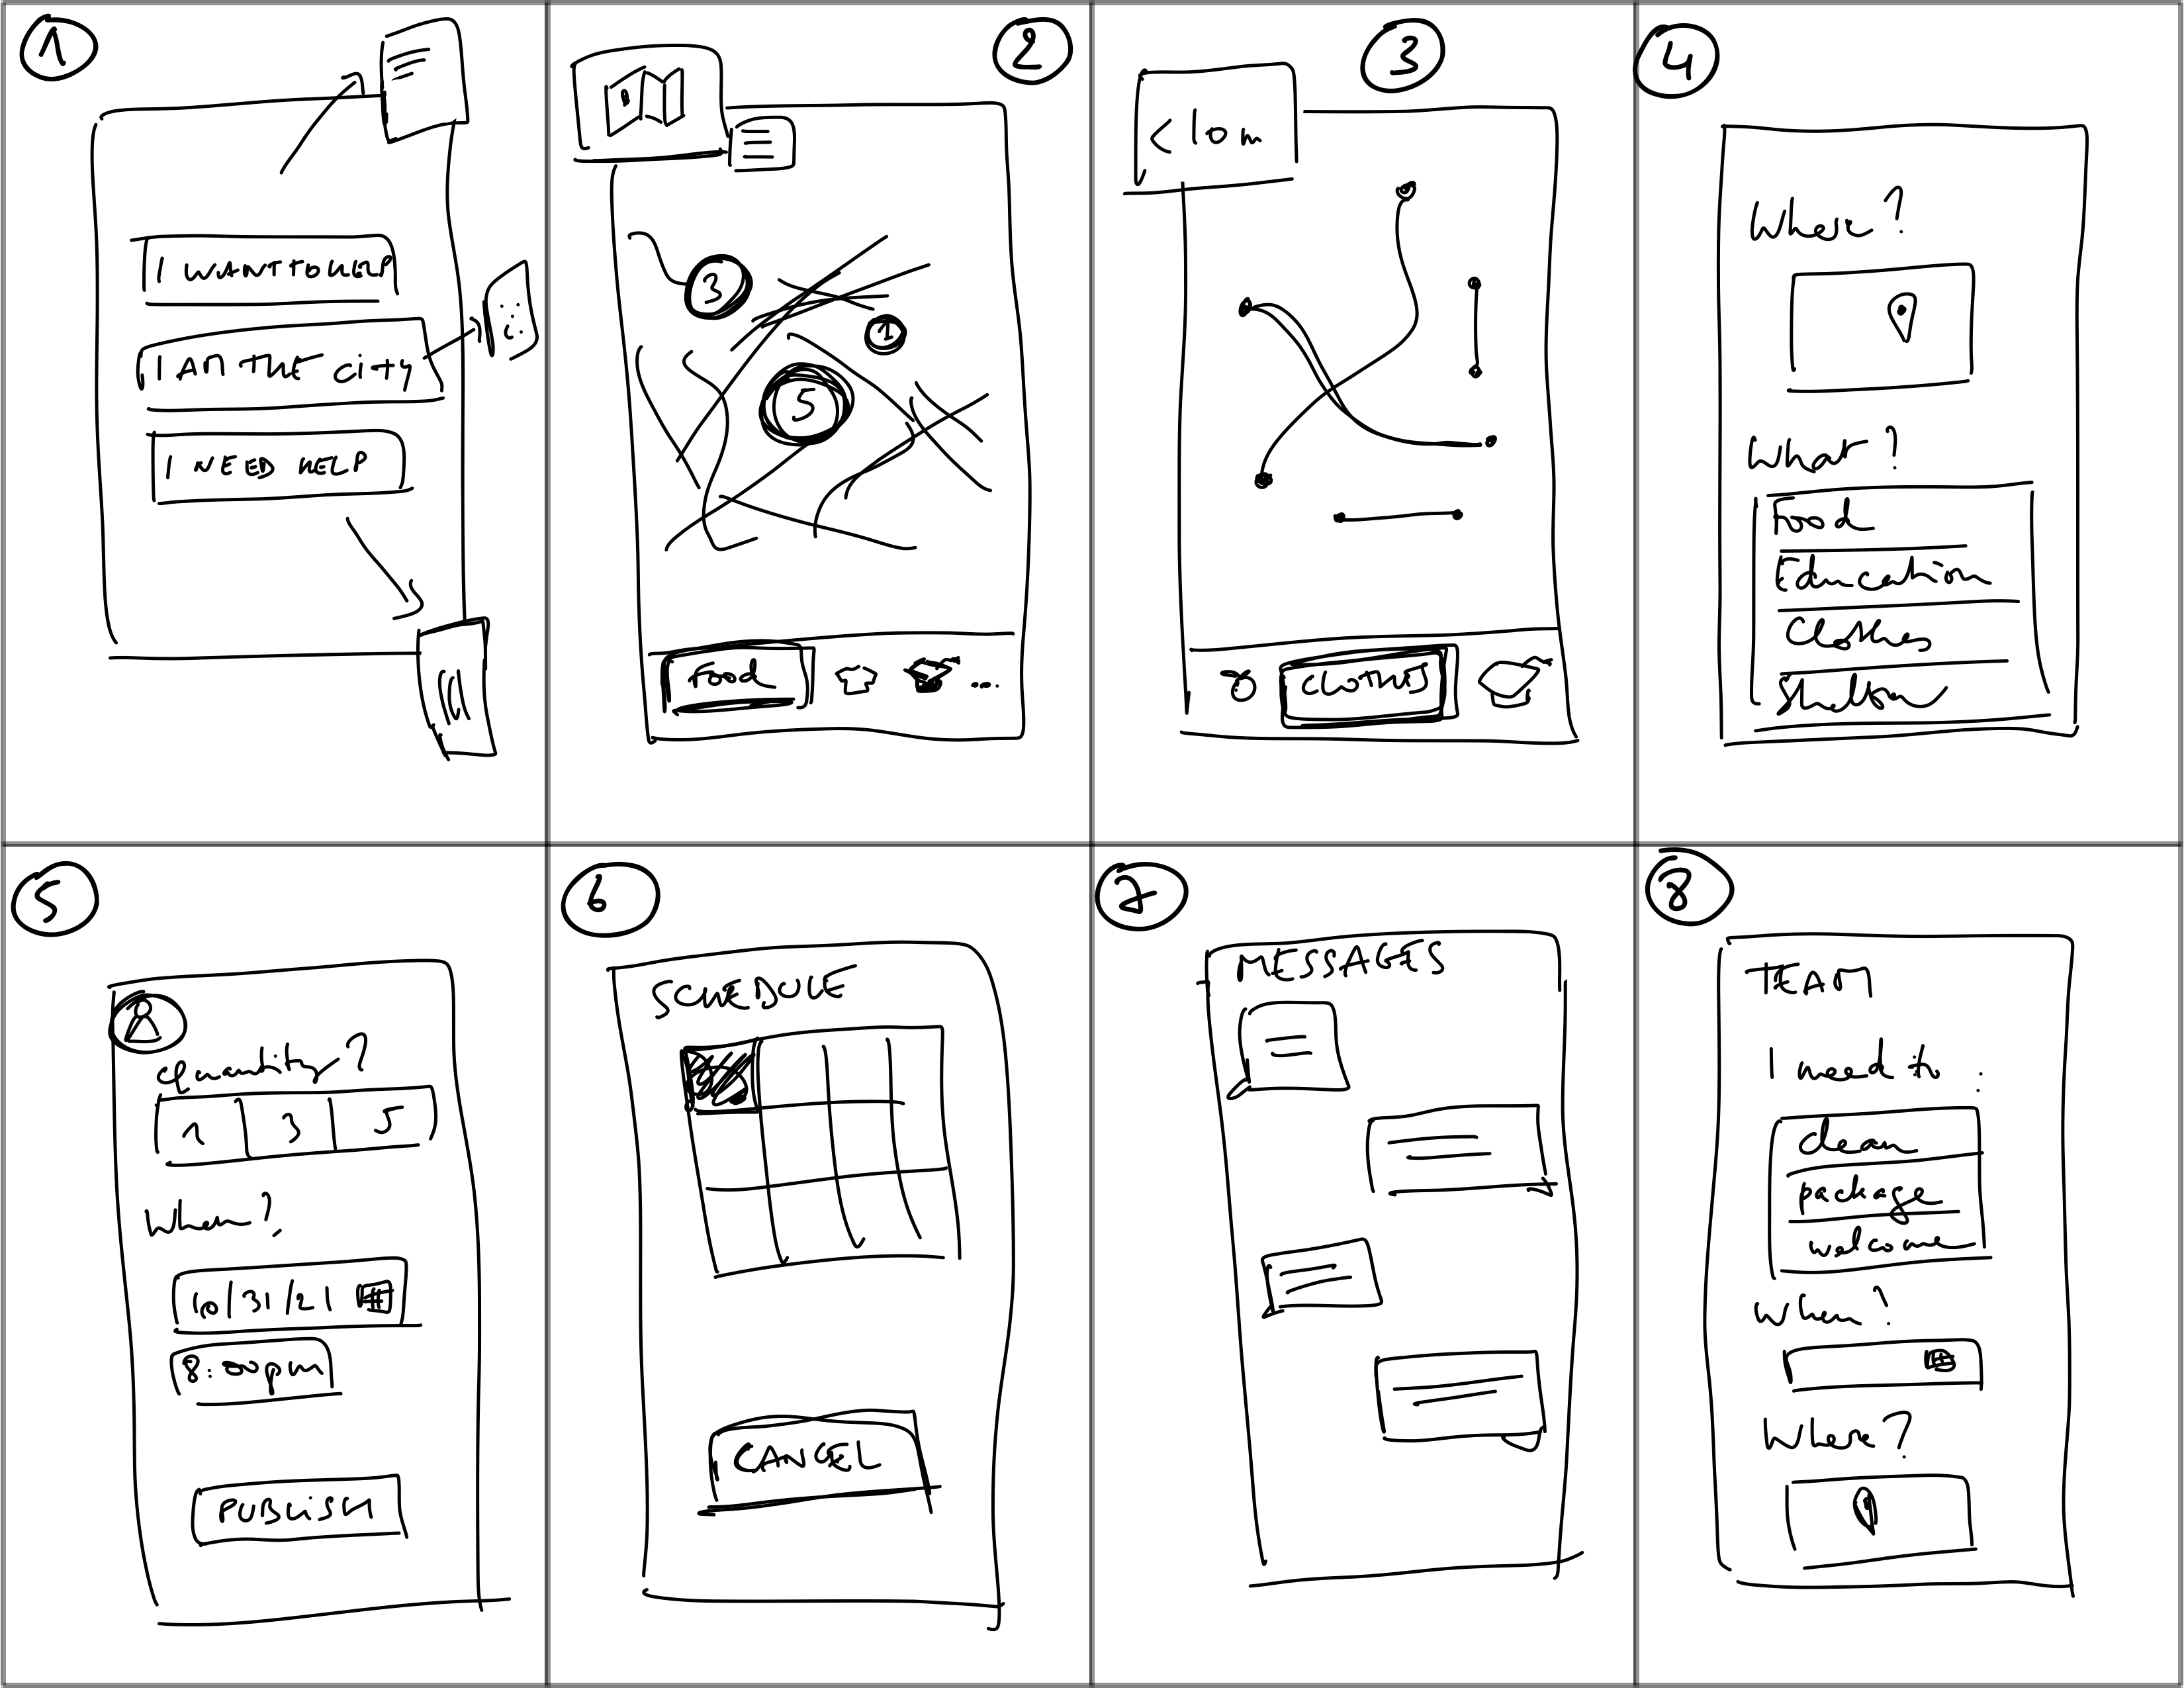 1
I WANT TO HELP
I AM THE CITY
I NEED HELP
2
3
1
5
Food
...
3
< 10m
CLOTHES
4
Where?
What?
Food
Education
Clothes
Shelter
5
Quantity?
1 3 5
When?
10/31/21
8:00pm
PUBLISH
6
SCHEDULE
CANCEL
7
MESSAGES
8
TEAM
I need to:
clean
package
welcome
When?
Where?